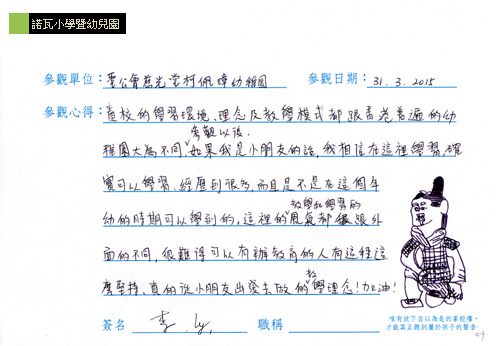 諾瓦小學暨幼兒園
參觀單位: 聖公會慈光堂柯佩璋幼稚園 參觀日期: 31. 3. 2015
參觀心得: 貴校的學習環境、理念及教學模式都跟香港普遍的幼
參觀以後,
稚園大為不同,如果我是小朋友的話,我相信在這裡學習確
實可以學習、經歷到很多,而且是不是在這個年
教學和學習的
幼的時期可以學到的,這裡的風氣都跟外
面的不同,很難得可以有辦教育的人有這種這
教
麼堅持、真的從小朋友出發去做的學理念!加油!
簽名 李 職稱
唯有放下自以為是的掌控權,
才能真正聽到屬於孩子的聲音